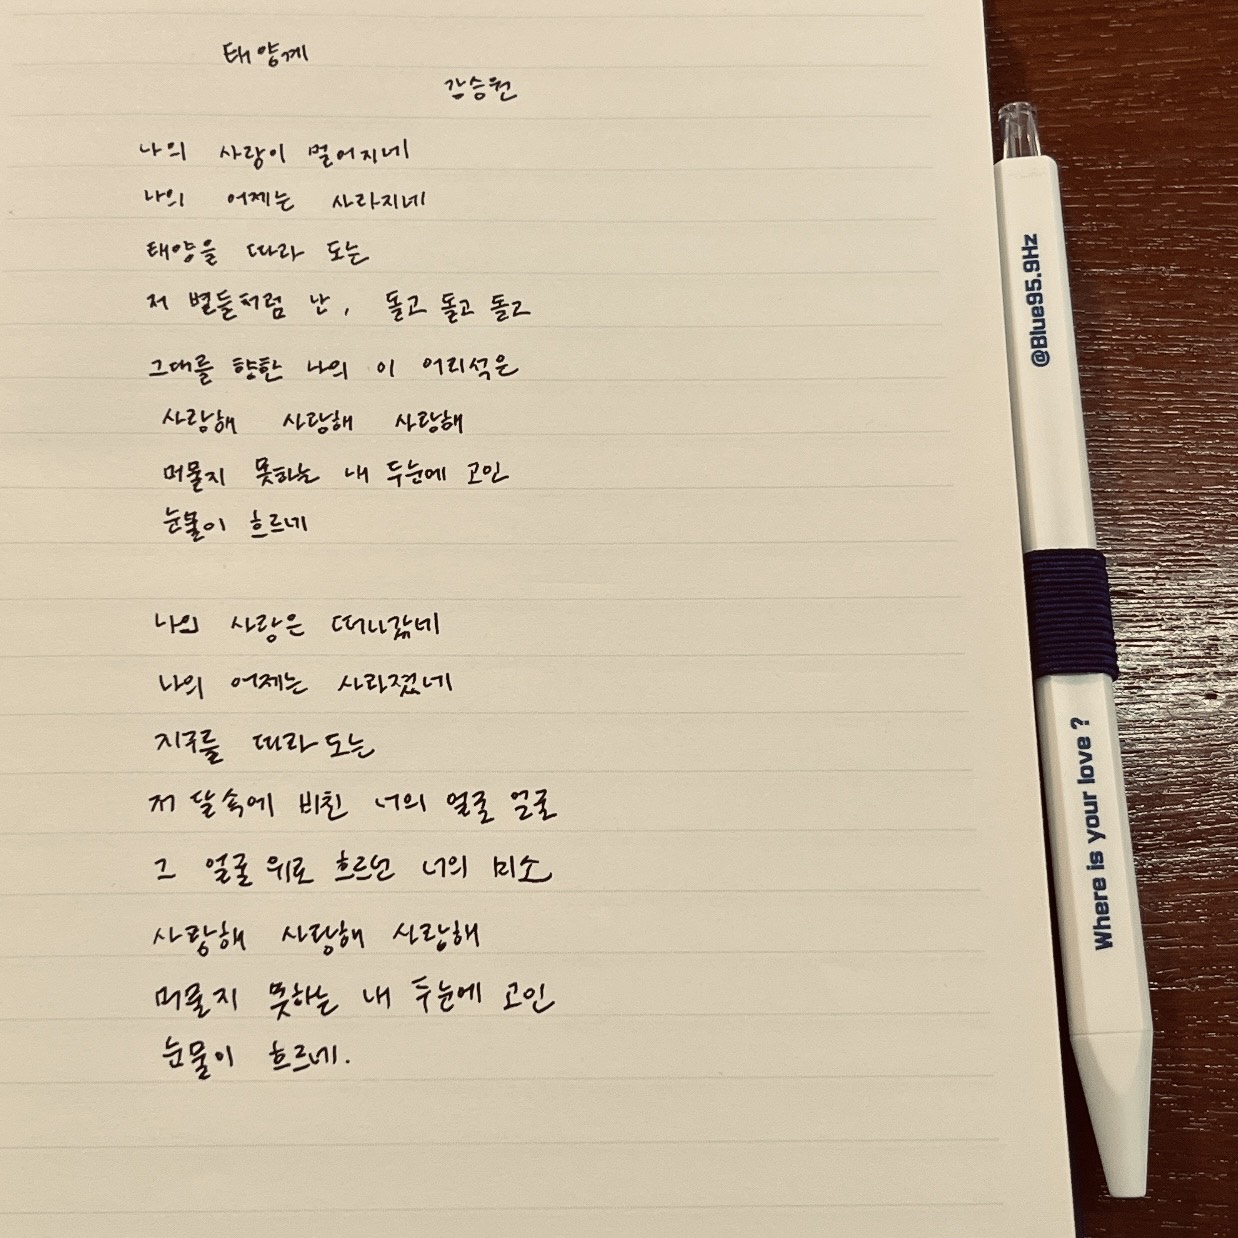 태양계
강승원
나의 사랑이 멀어지네
나의 어제는 사라지네
태양을 따라 도는
저 별들처럼 난, 돌고 돌고 돌고
그대를 향한 나의 이 어리석은
사랑해 사랑해 사랑해
머물지 못하는 내 두눈에 고인
눈물이 흐르네
나의 사랑은 떠나갔네
나의 어제는 사라졌네
지구를 따라 도는
저 달 속에 비친 너의 얼굴 얼굴
그 얼굴 위로 흐르던 너의 미소
사랑해 사랑해 사랑해
머물지 못하는 내 두눈에 고인
눈물이 흐르네.
@Blue95.9Hz
Where is your love ?